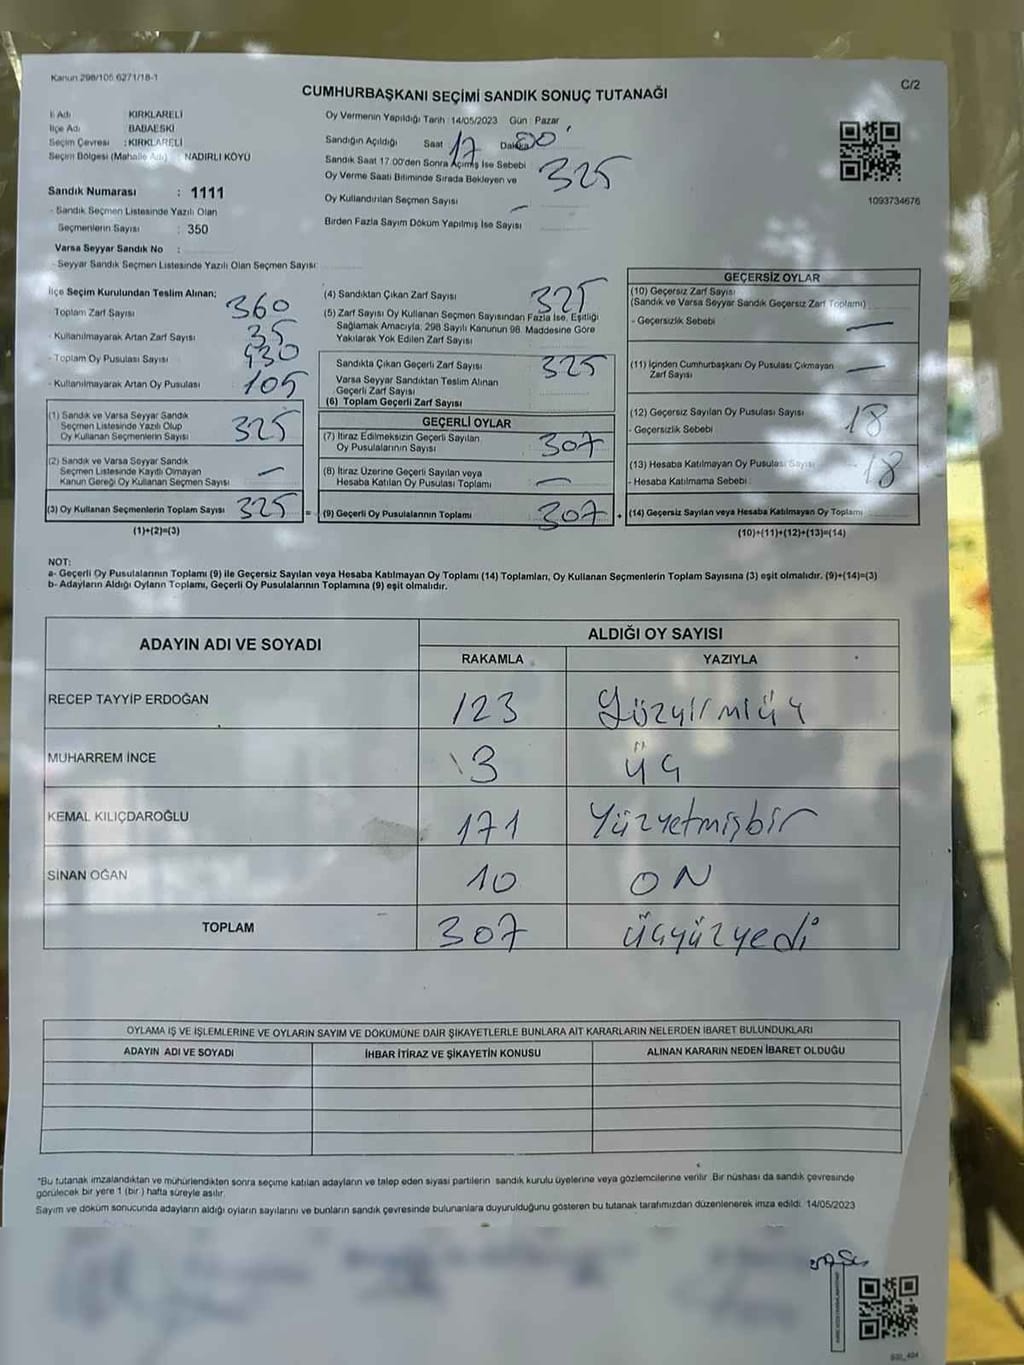 Kanun 298/105 6271/18-1
C/2
CUMHURBAŞKANI SEÇİMİ SANDIK SONUÇ TUTANAĞI
İl Adı KIRKLARELİ
İlçe Adı BABAESKİ
Seçim Çevresi : KIRKLARELİ
Seçim Bölgesi (Mahalle Adı) NADIRLI KÖYÜ
Sandık Numarası : 1111
- Sandık Seçmen Listesinde Yazılı Olan
Seçmenlerin Sayısı : 350
Varsa Seyyar Sandık No :
- Seyyar Sandık Seçmen Listesinde Yazılı Olan Seçmen Sayısı:
Oy Vermenin Yapıldığı Tarih : 14/05/2023 Gün : Pazar
Sandığın Açıldığı Saat 17 Dakika 00
Sandık Saat 17.00'den Sonra Açımış İse Sebebi
Oy Verme Saati Bitiminde Sırada Bekleyen ve
Oy Kullandırılan Seçmen Sayısı 325
Birden Fazla Sayım Döküm Yapılmış İse Sayısı —
1093734676
İlçe Seçim Kurulundan Teslim Alınan;
Toplam Zarf Sayısı 360
- Kullanılmayarak Artan Zarf Sayısı 35
- Toplam Oy Pusulası Sayısı 430
- Kullanılmayarak Artan Oy Pusulası 105
(1) Sandık ve Varsa Seyyar Sandık
Seçmen Listesinde Yazılı Olup
Oy Kullanan Seçmenlerin Sayısı 325
(2) Sandık ve Varsa Seyyar Sandık
Seçmen Listesinde Kayıtlı Olmayan
Kanun Gereği Oy Kullanan Seçmen Sayısı —
(3) Oy Kullanan Seçmenlerin Toplam Sayısı 325 =
(1)+(2)=(3)
(4) Sandıktan Çıkan Zarf Sayısı 325
(5) Zarf Sayısı Oy Kullanan Seçmen Sayısından Fazla İse, Eşitliği
Sağlamak Amacıyla, 298 Sayılı Kanunun 98. Maddesine Göre
Yakılarak Yok Edilen Zarf Sayısı
Sandıkta Çıkan Geçerli Zarf Sayısı 325
Varsa Seyyar Sandıktan Teslim Alınan
Geçerli Zarf Sayısı
(6) Toplam Geçerli Zarf Sayısı
GEÇERLİ OYLAR
(7) İtiraz Edilmeksizin Geçerli Sayılan
Oy Pusulalarının Sayısı 307
(8) İtiraz Üzerine Geçerli Sayılan veya
Hesaba Katılan Oy Pusulası Toplamı —
(9) Geçerli Oy Pusulalarının Toplamı 307 +
GEÇERSİZ OYLAR
(10) Geçersiz Zarf Sayısı
(Sandık ve Varsa Seyyar Sandık Geçersiz Zarf Toplamı)
- Geçersizlik Sebebi —
(11) İçinden Cumhurbaşkanı Oy Pusulası Çıkmayan
Zarf Sayısı —
(12) Geçersiz Sayılan Oy Pusulası Sayısı 18
- Geçersizlik Sebebi
(13) Hesaba Katılmayan Oy Pusulası Sayısı 18
- Hesaba Katılmama Sebebi
(14) Geçersiz Sayılan veya Hesaba Katılmayan Oy Toplamı
(10)+(11)+(12)+(13)=(14)
NOT:
a- Geçerli Oy Pusulalarının Toplamı (9) ile Geçersiz Sayılan veya Hesaba Katılmayan Oy Toplamı (14) Toplamları, Oy Kullanan Seçmenlerin Toplam Sayısına (3) eşit olmalıdır. (9)+(14)=(3)
b- Adayların Aldığı Oyların Toplamı, Geçerli Oy Pusulalarının Toplamına (9) eşit olmalıdır.
ADAYIN ADI VE SOYADI ALDIĞI OY SAYISI
RAKAMLA YAZIYLA
RECEP TAYYİP ERDOĞAN 123 Yüzyirmiüç
MUHARREM İNCE 3 üç
KEMAL KILIÇDAROĞLU 171 Yüzyetmişbir
SİNAN OĞAN 10 ON
TOPLAM 307 üçyüzyedi
OYLAMA İŞ VE İŞLEMLERİNE VE OYLARIN SAYIM VE DÖKÜMÜNE DAİR ŞİKAYETLERLE BUNLARA AİT KARARLARIN NELERDEN İBARET BULUNDUKLARI
ADAYIN ADI VE SOYADI İHBAR İTİRAZ VE ŞİKAYETİN KONUSU ALINAN KARARIN NEDEN İBARET OLDUĞU
*Bu tutanak imzalandıktan ve mühürlendikten sonra seçime katılan adayların ve talep eden siyasi partilerin sandık kurulu üyelerine veya gözlemcilerine verilir. Bir nüshası da sandık çevresinde
görülecek bir yere 1 (bir) hafta süreyle asılır.
Sayım ve döküm sonucunda adayların aldığı oyların sayılarını ve bunların sandık çevresinde bulunanlara duyurulduğunu gösteren bu tutanak tarafımızdan düzenlenerek imza edildi. 14/05/2023